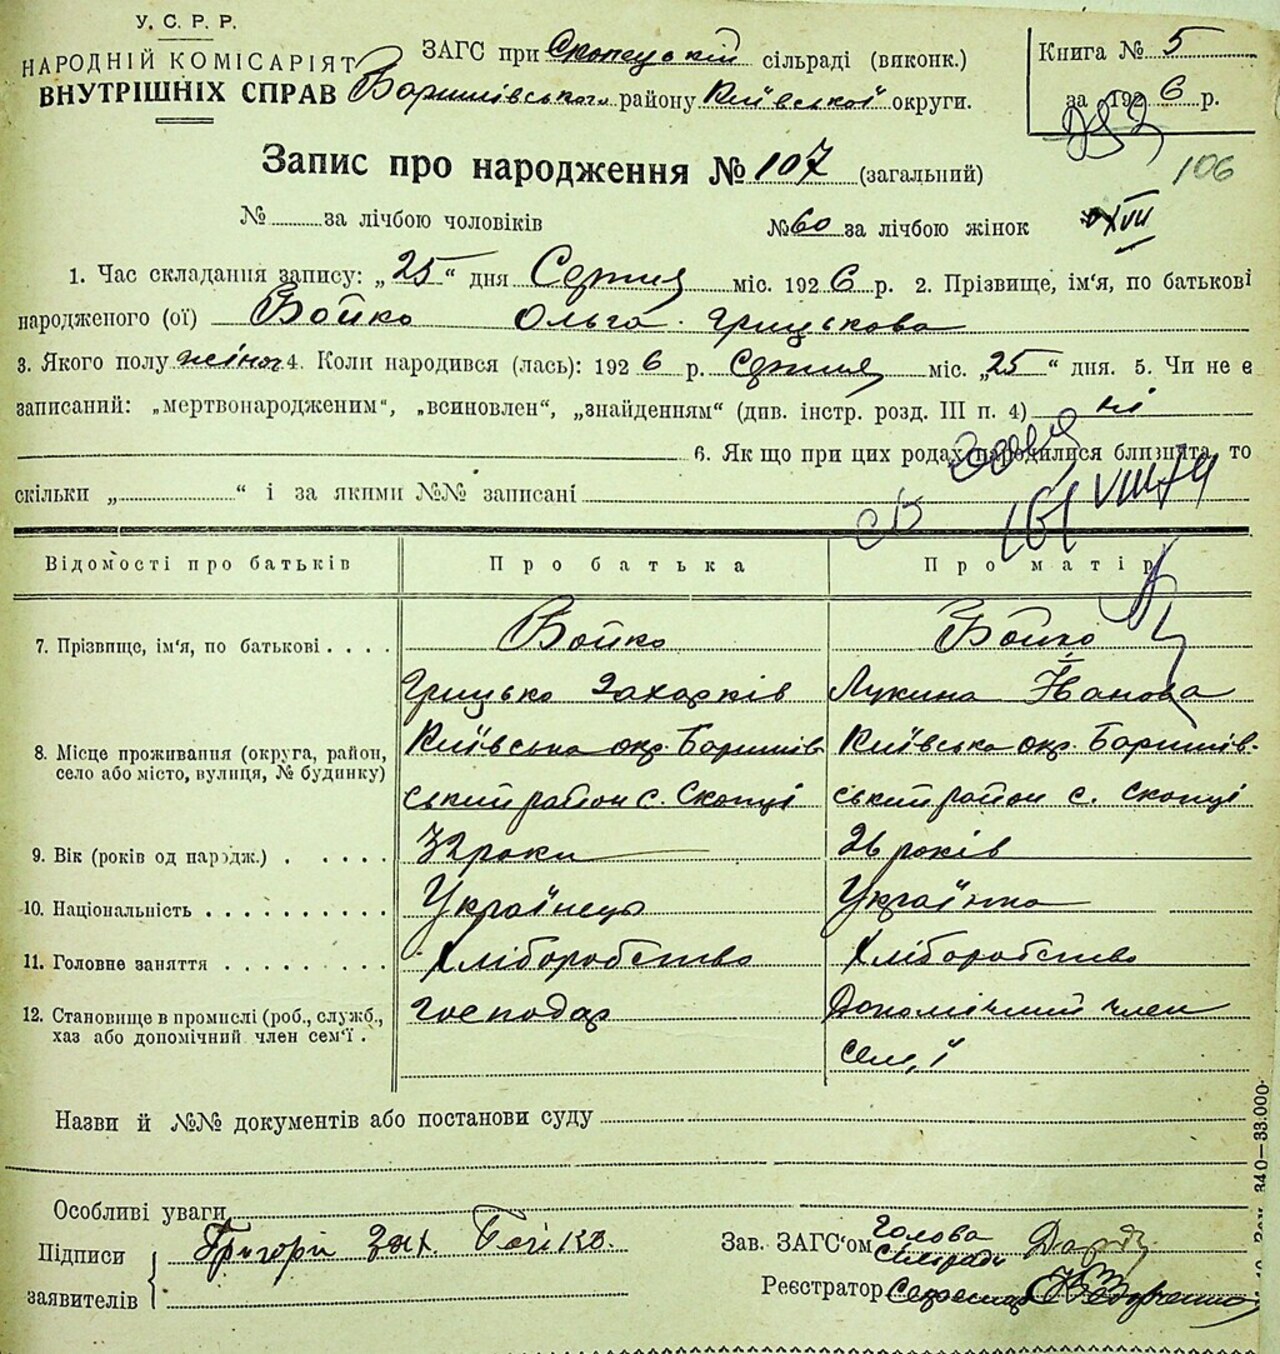 У. С. Р. Р.
НАРОДНІЙ КОМІСАРІЯТ
ВНУТРІШНІХ СПРАВ
ЗАГС при Скопецькій сільраді (виконк.)
Баришівського району Київської округи.
Книга № 5
за 1926 р.
106
Запис про народження № 107 (загальний)
№ ........ за лічбою чоловіків
№ 60 за лічбою жінок
XVII
1. Час складання запису: „25“ дня Серпня міс. 1926 р. 2. Прізвище, ім'я, по батькові
народженого (ої) Бойко Ольга Грицькова
3. Якого полу жіноч 4. Коли народився (лась): 1926 р. Серпня міс. „25“ дня. 5. Чи не є
записаний: „мертвонародженим“, „всиновлен“, „знайденням“ (див. інстр. розд. III п. 4) ні
6. Як що при цих родах народилися близнята, то
скільки „............“ і за якими №№ записані
VIII 74
Відомості про батьків Про батька Про матір
7. Прізвище, ім'я, по батькові . . . . Бойко Бойко
Грицько Захарків Лукина Іванова
8. Місце проживання (округа, район, село або місто, вулиця, № будинку) Київська окр. Баришів- Київська окр. Баришів-
ський район с. Скопці ський район с. Скопці
9. Вік (років од народж.) . . . . . 32 роки 26 років
10. Національність . . . . . . . . . . Українець Українка
11. Головне заняття . . . . . . . . . Хліборобство Хліборобство
12. Становище в промислі (роб., служб., Господар Допомічний член
хаз або допомічний член сем'ї . сем'ї
Назви й №№ документів або постанови суду
Особливі уваги
Підписи Григорій Зах.
заявителів
Зав. ЗАГС'ом Голова
Сільради
Реєстратор Секретар
340—33.000.